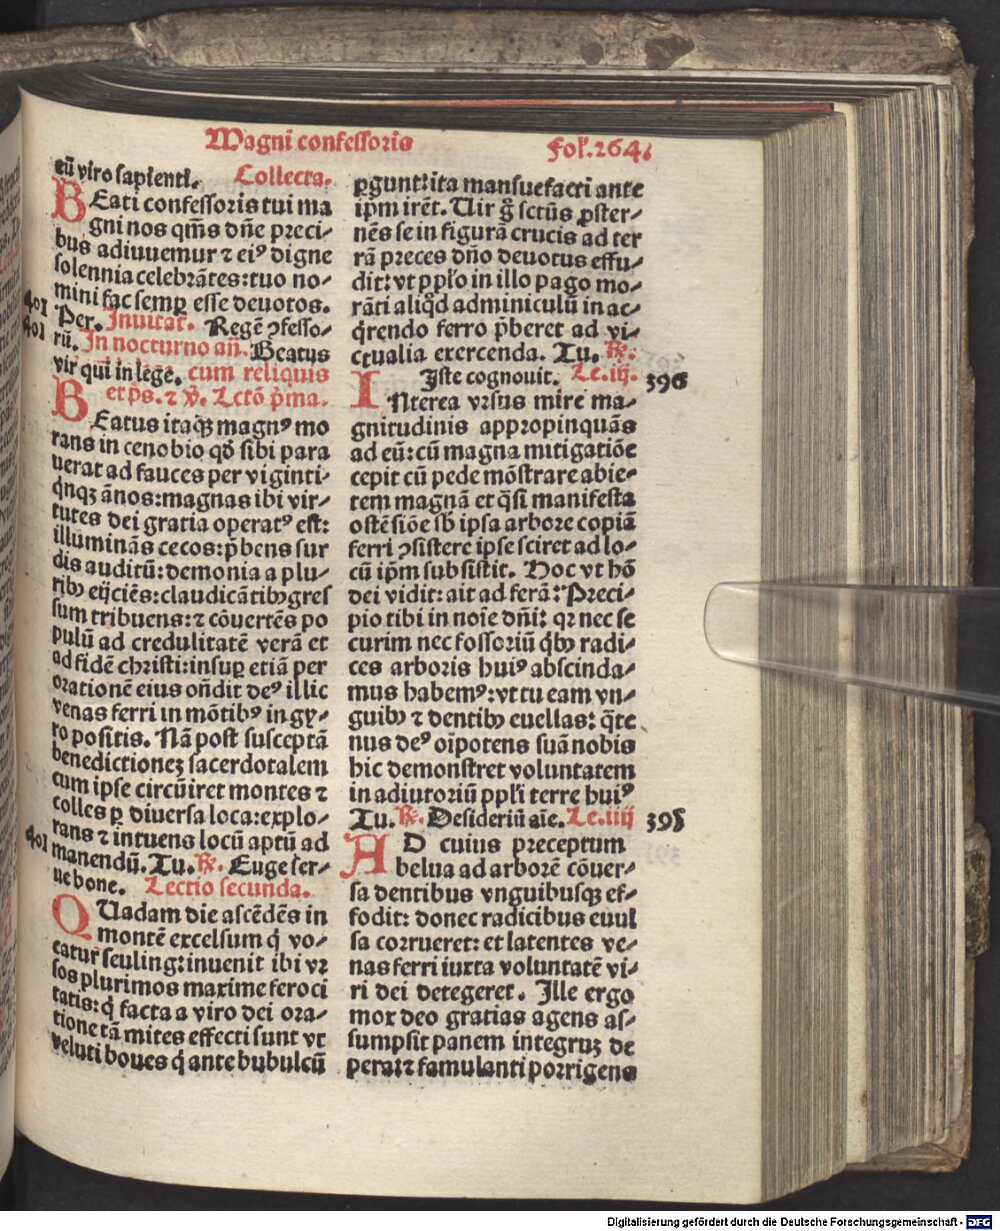 Magni confessoris
Fol'.264.
tū viro sapienti. Collecta.
BEati confessoris tui ma
gni nos qm̄s dn̄e preci⸗
bus adiuuemur ⁊ eiꝰ digne
solennia celebrātes: tuo no⸗
mini fac semꝑ esse deuotos.
401
Per. Inuitat'. Regē ꝯfesso⸗
401
rū. In nocturno an̄. Beatus
vir qui in lege. cum reliquis
et p̄s. ⁊ v̄. Lctō p̄ma.
BEatus itaqꝫ magnꝰ mo
rans in cenobio qď sibi para
uerat ad fauces per viginti⸗
q̇nqꝫ ānos: magnas ibi vir⸗
tutes dei gratia operatꝰ est:
illuminās cecos: p̄bens sur
dis auditū: demonia a plu⸗
ribꝰ eijciēs: claudicātibꝰ gres
sum tribuens: ⁊ cōuertēs po
pulū ad credulitatē verā et
ad fidē christi: insuꝑ etiā per
orationē eius on̄dit deꝰ illic
venas ferri in mōtibꝰ in gy⸗
ro positis. Nā post susceptā
benedictioneꝫ sacerdotalem
cum ipse circūiret montes ⁊
colles ꝑ diuersa loca: explo⸗
rans ⁊ intuens locū aptū ad
401
manendū. Tu. ℟. Euge ser⸗
ue bone. Lectio secunda.
QUadam die ascēdēs in
montē excelsum q̇ vo⸗
catur seuling: inuenit ibi vr
sos plurimos maxime feroci
tatis: q̇ facta a viro dei ora⸗
tione tā mites effecti sunt vt
veluti boues q̇ ante bubulcū
ꝑgunt: ita mansuefacti ante
ip̄m irēt. Uir g̊ sctūs ꝓster⸗
nēs se in figurā crucis ad ter
rā preces dn̄o deuotus effu⸗
dit: vt ppl'o in illo pago mo⸗
rāti aliq̇d adminiculū in ac⸗
q̇rendo ferro p̄beret ad vi⸗
ctualia exercenda. Tu. ℟.
Iste cognouit. Le. iij.
396
INterea vrsus mire ma⸗
gnitudinis appropinquās
ad eū: cū magna mitigatiōe
cepit cū pede mōstrare abie⸗
tem magnā et q̄si manifesta
ostēsiōe sb̄ ipsa arbore copiā
ferri ꝯsistere ipse sciret ad lo⸗
cū ip̄m subsistit. Hoc vt hō
dei vidit: ait ad ferā: Preci⸗
pio tibi in noīe dn̄i: qꝛ nec se
curim nec fossoriū q̇bꝰ radi⸗
ces arboris huiꝰ abscinda⸗
mus habemꝰ: vt tu eam vn⸗
guibꝰ ⁊ dentibꝰ euellas: q̄te
nus deꝰ oīpotens suā nobis
hic demonstret voluntatem
in adiutoriū ppl'i terre huiꝰ
Tu. ℟. Desideriū aīe. Le. iiij
395
AD cuius preceptum
belua ad arborē cōuer⸗
sa dentibus vnguibusqꝫ ef⸗
fodit: donec radicibus euul
sa corrueret: et latentes ve⸗
nas ferri iuxta voluntatē vi⸗
ri dei detegeret. Ille ergo
mox deo gratias agens as⸗
sumpsit panem integruꝫ de
pera: ⁊ famulanti porrigens
Digitalisierung gefördert durch die Deutsche Forschungsgemeinschaft - DFG